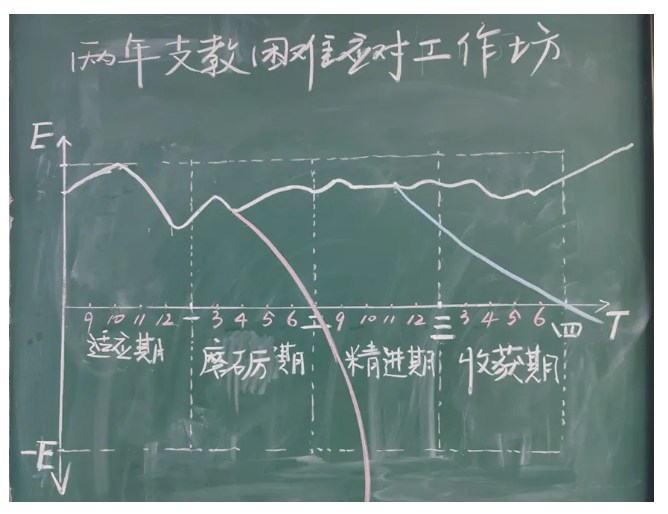 两年支教困难应对工作坊
E
9 10 11 12 一 3 4 5 6 二 9 10 11 12 三 3 4 5 6 四 T
适应期 磨砺期 精进期 收获期
-E